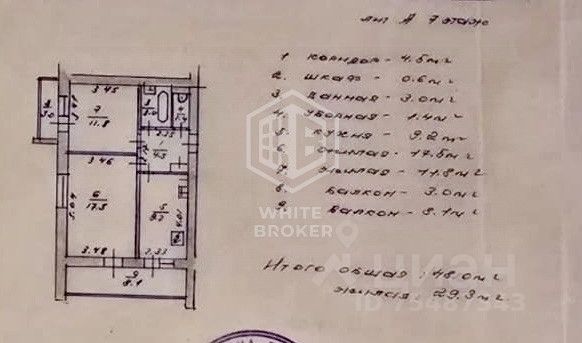 лит А 7 этаж
1 коридор - 4.5 м²
2. шкаф - 0.6 м²
3 ванная - 3.0 м²
4. уборная - 1.4 м²
5 кухня - 9.2 м²
6 жилая - 17.5 м²
7 жилая - 11.8 м²
8 балкон - 3.0 м²
9. балкон - 8.1 м²
Итого общая: 48.0 м²
жилая: 29.3 м²
3.45
7
11.8
3.46
6
17.5
5.04
3.48
2.33
4.01
9
8.1
WHITE
BROKER
ЦИАН
ID 75487543